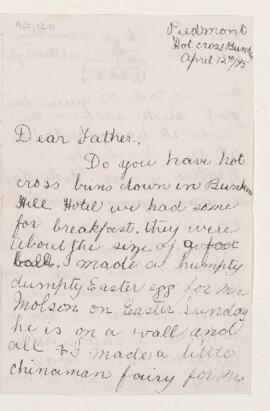 Piedmont
Hot cross Bunday
April 12th/95
Dear Father,
Do you have hot
cross buns down in Bunkum
Hill Hotel we had some
for breakfast. they were
about the size of a foot
ball. I made a humpty
dumpty Easter egg for Mr
Molson on Easter Sunday
he is on a wall and
all & I made a little
chinaman fairy for Mrs.